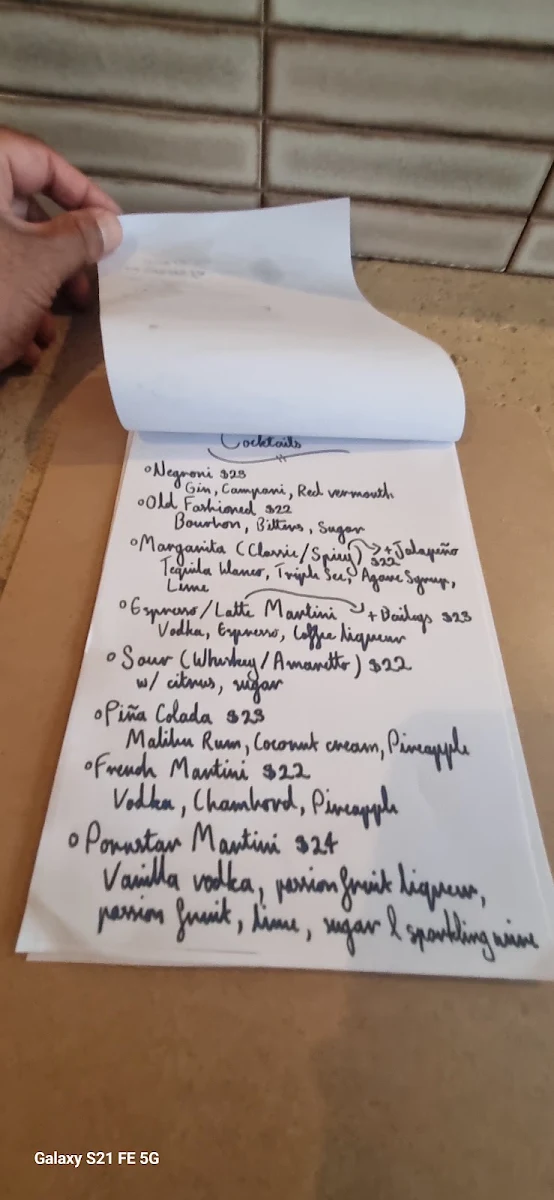 Cocktails
Negroni $23
Gin, Campani, Red vermouth
Old Fashioned $22
Bourbon, Bitters, Sugar
Margarita (Classic/Spicy) $22 + Jalapeño
Tequila blanco, Triple Sec, Agave Syrup,
Lime
Espresso/Latte Martini + Baileys $23
Vodka, Espresso, Coffee liqueur
Sour (Whiskey/Amaretto) $22
w/ citrus, sugar
Piña Colada $23
Malibu Rum, Coconut cream, Pineapple
French Martini $22
Vodka, Chambord, Pineapple
Pornstar Martini $24
Vanilla vodka, passionfruit liqueur,
passion fruit, lime, sugar & sparkling wine
Galaxy S21 FE 5G